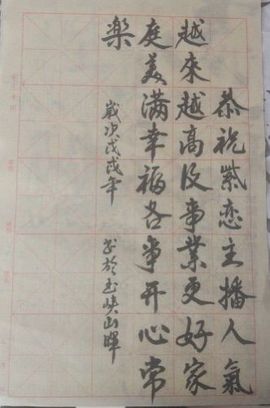 恭祝紫恋主播人氣
越來越高及事業更好家
庭美满幸福各事开心常
樂
歲次戊戌年 书於玉峡山暉